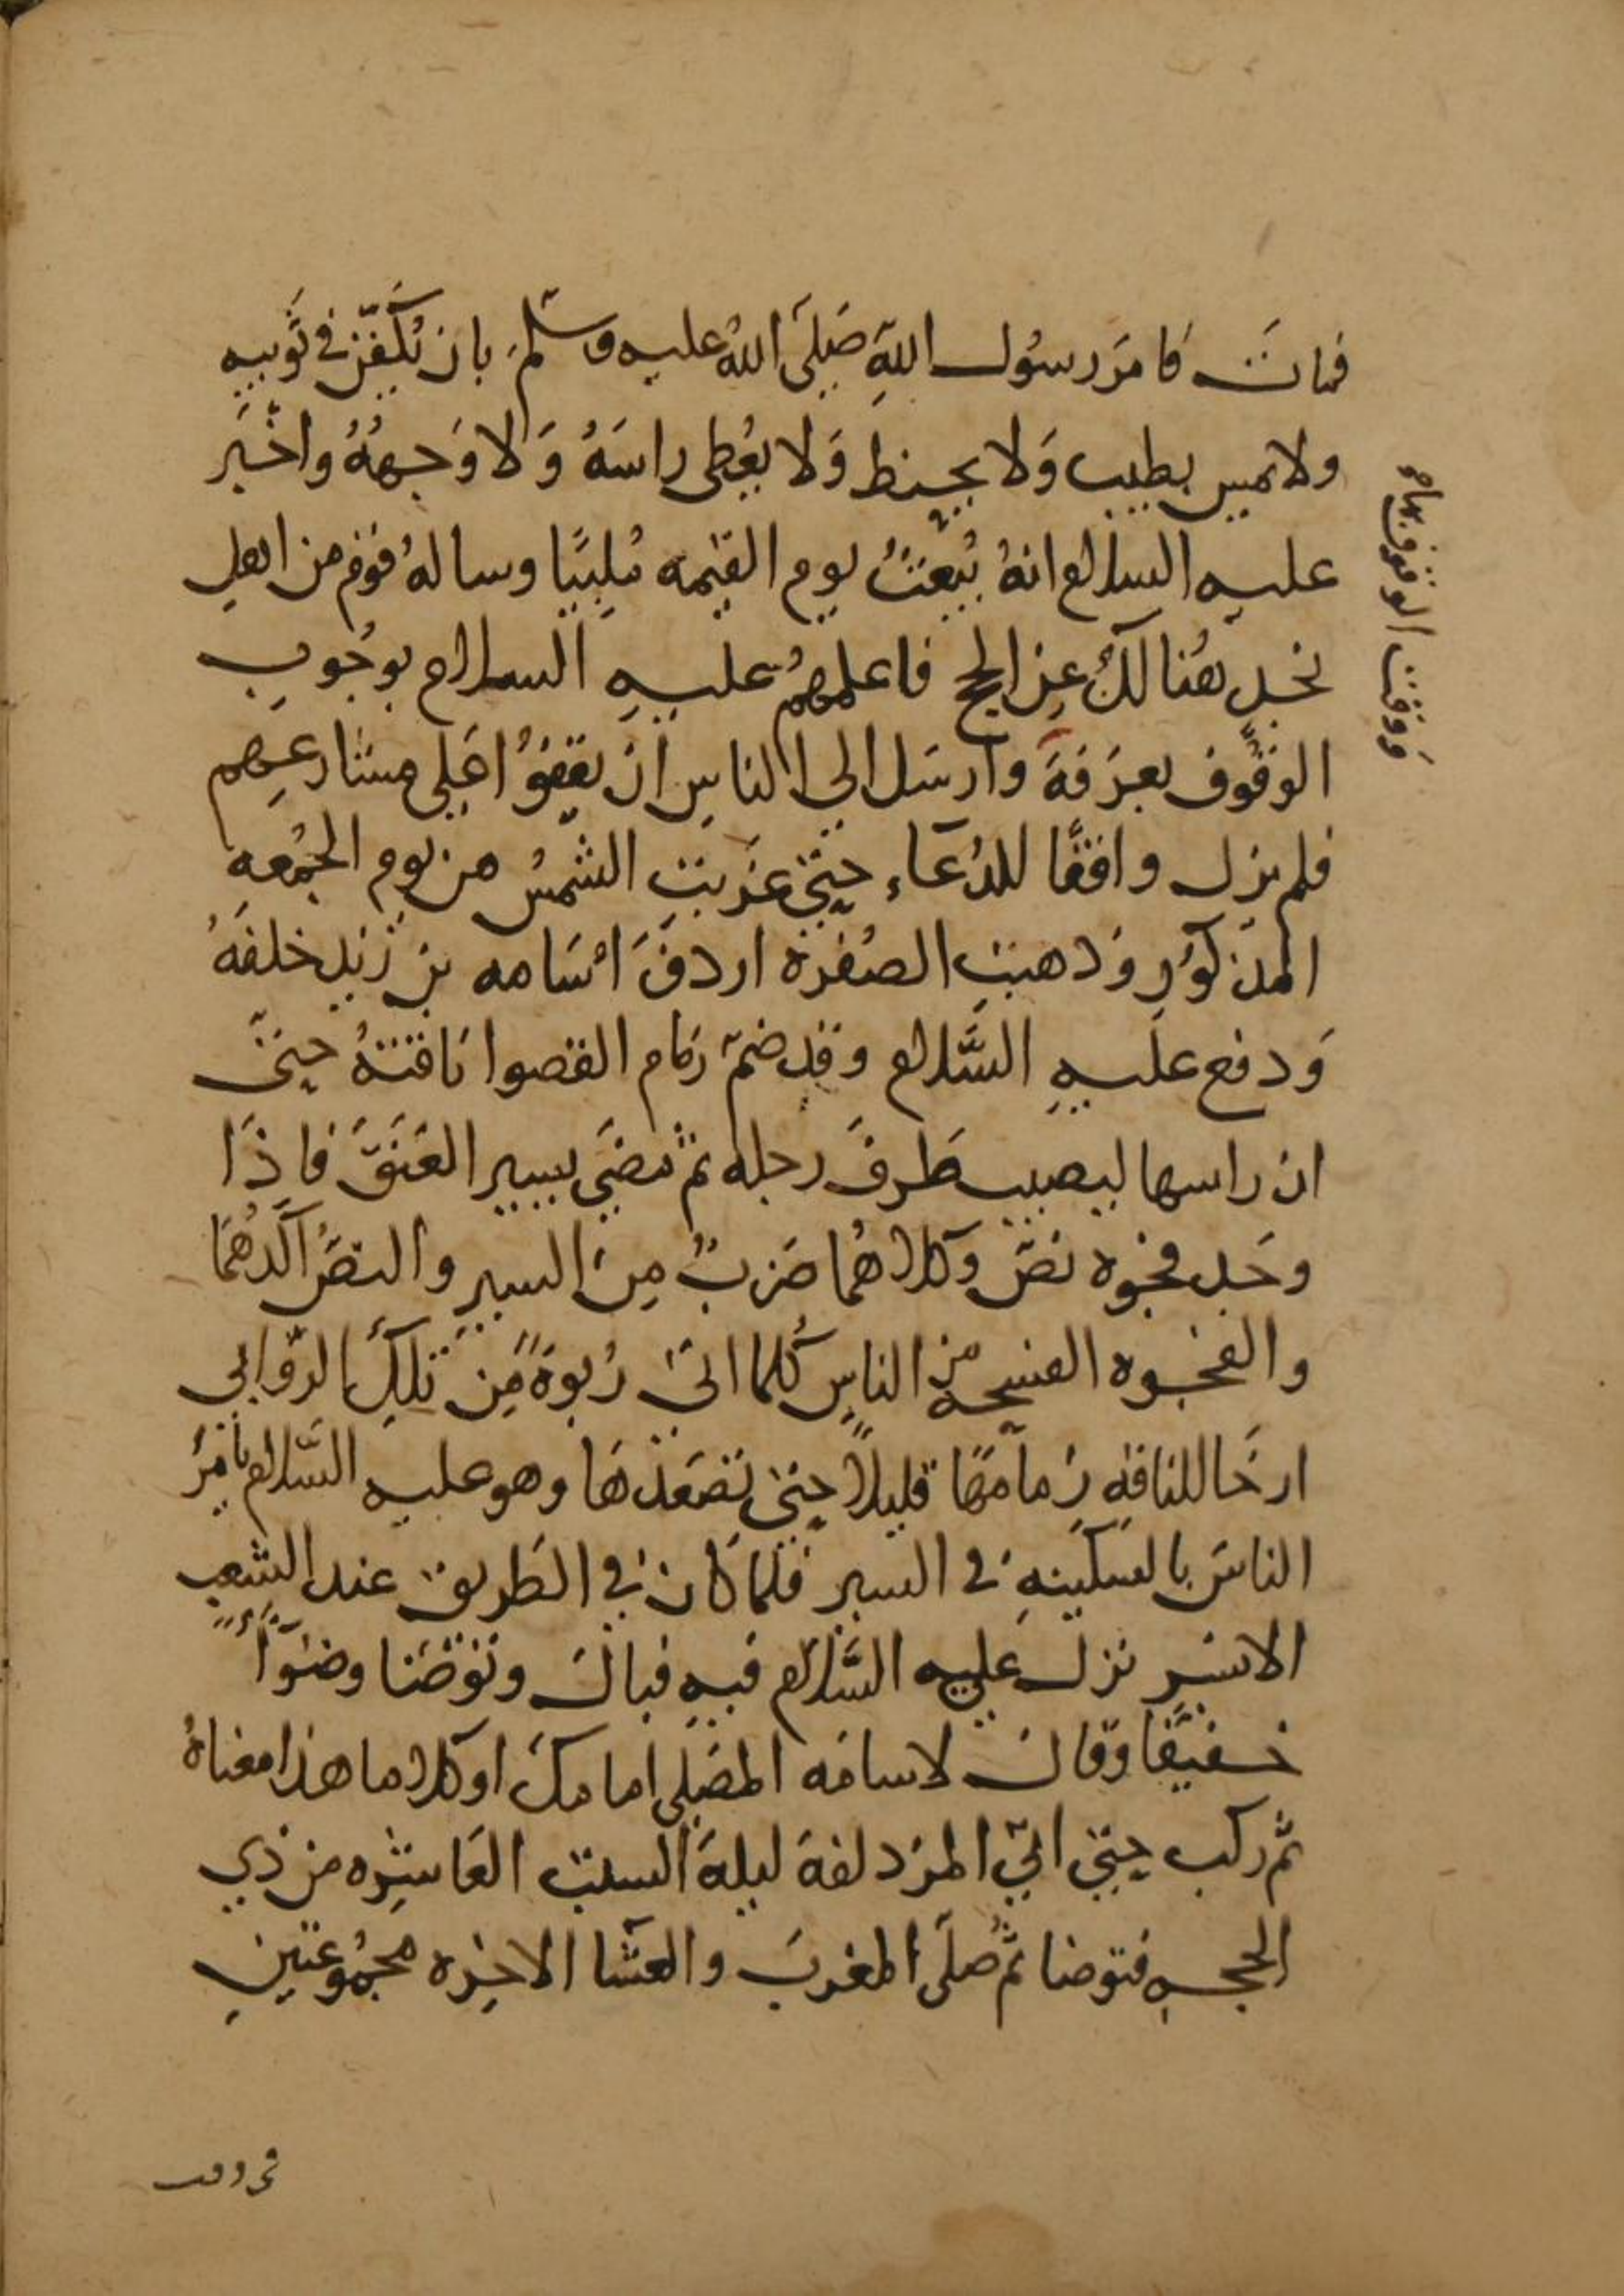 فمات فامَر رسُول اللهِ صَلىَ اللهُ عليه وسلمَ بان يُكَفّن في ثَوبيه
ولا يمس بطيب وَلا يحنط وَلا يغُطى راسَهُ وَلا وَجههُ واخبَر
عليه السلام انهُ يُبعَثُ يوم القيمه مُلبيًا وساله قوم من اهل
نجد هُنالك عن الحج فاعلمهمُ عليه السلام بوجُوب
الوقُوف بعرَفةَ وارسَل الي الناس ان يقفوُا عَلى مشارعهم
فلم يزل واقفًا للدُعَاء حتى غرَبت الشمسُ من يوم الجمُعه
المذكوُر وَذهبت الصُفرة اردفَ اسَامه بن زيد خلفَهُ
وَدفع عليهِ السَّلام وقد ضمّ زمام القصوا نَاقتهُ حتىَ
ان راسها ليصيب طَرفَ رجله ثم مضَى يسير العَنَقَ فاذَا
وجَد فجوه نصَ وكلاهُما ضَربٌ مِن السير والنصُ اكَدهُمَا
والفجوه الفسحه من الناسِ كُلما اتىَ رُبوةً مِن تلكَ الروَابى
ارخَا للناقهِ زمامهَا قليلاً حتى تصَعَدهَا وهو عليه السَّلام يامرُ
الناسَ بالسكينهِ في السير فلما كان في الطَريق عند الشعب
الايسَر نزل عليه السَّلام فيه فبال وتوضَا وضوًا
خفيفًا وقال لاسامَه المصَلى امامكَ اوكلاما هذا معناهُ
ثم ركب حتى اتي المزدلفة ليلةَ السبت العَاشره من ذي
الحجه فتوضا ثُم صلىَ المغربَ والعشَا الاخِره مجمُوعتينِ
وَوقت الوقوف بها